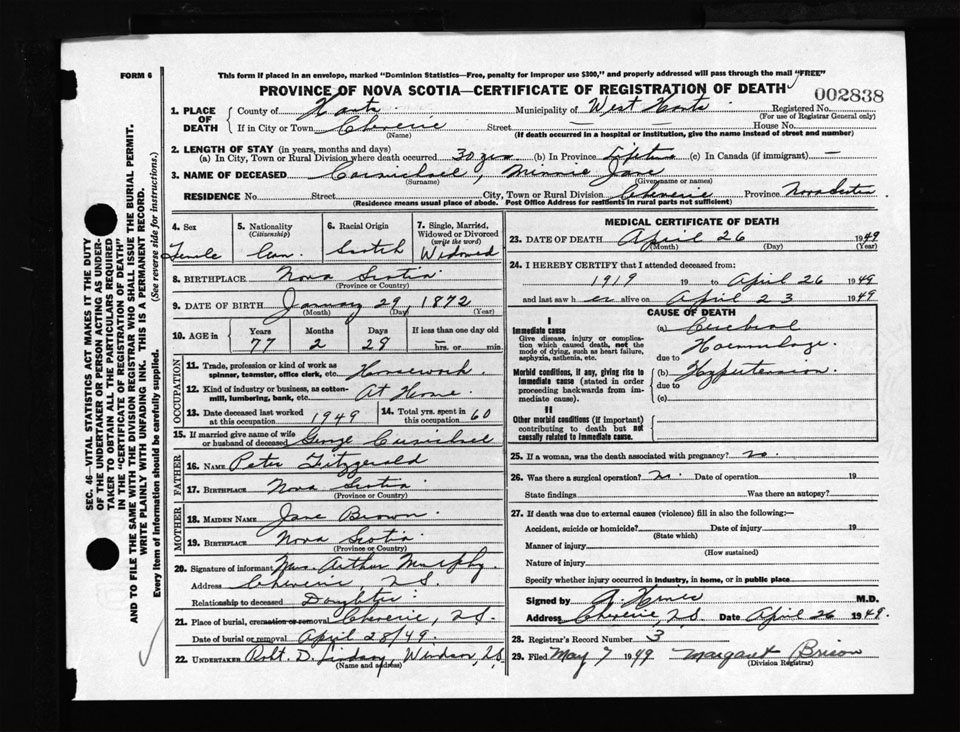 FORM 6
This form if placed in an envelope, marked "Dominion Statistics—Free, penalty for improper use $300," and properly addressed will pass through the mail "FREE"
PROVINCE OF NOVA SCOTIA—CERTIFICATE OF REGISTRATION OF DEATH
002838
1. PLACE OF DEATH
County of Hants Municipality of West Hants Registered No.
(For use of Registrar General only)
If in City or Town Cheverie Street — House No. —
(Name) (If death occurred in a hospital or institution, give the name instead of street and number)
2. LENGTH OF STAY (in years, months and days)
(a) In City, Town or Rural Division where death occurred 30 yrs (b) In Province Lifetime (c) In Canada (if immigrant) —
3. NAME OF DECEASED Carmichael, Minnie Jane
(Surname) (Given name or names)
RESIDENCE No. Street City, Town or Rural Division Cheverie Province Nova Scotia
(Residence means usual place of abode. Post Office Address for residents in rural parts not sufficient)
4. Sex Female
5. Nationality (Citizenship) Can.
6. Racial Origin Scotch
7. Single, Married, Widowed or Divorced (write the word) Widowed
8. BIRTHPLACE Nova Scotia
(Province or Country)
9. DATE OF BIRTH January 29, 1872
(Month) (Day) (Year)
10. AGE in Years 77 Months 2 Days 28 If less than one day old — hrs. or min.
OCCUPATION
11. Trade, profession or kind of work as spinner, teamster, office clerk, etc. Housework.
12. Kind of industry or business, as cotton-mill, lumbering, bank, etc. At Home.
13. Date deceased last worked at this occupation 1949
14. Total yrs. spent in 60
15. If married give name of wife or husband of deceased George Carmichael
FATHER
16. NAME Peter Fitzgerald
17. BIRTHPLACE Nova Scotia
(Province or Country)
MOTHER
18. MAIDEN NAME Jane Brown
19. BIRTHPLACE Nova Scotia
(Province or Country)
20. Signature of informant Mrs. Arthur Murphy.
Address Cheverie N.S.
Relationship to deceased Daughter
21. Place of burial, cremation or removal Cheverie, N.S.
Date of burial or removal April 28/49.
22. UNDERTAKER Robt. D. Lindsay, Windsor, N.S.
(Name and address)
MEDICAL CERTIFICATE OF DEATH
23. DATE OF DEATH April 26 1949
(Month) (Day) (Year)
24. I HEREBY CERTIFY that I attended deceased from:
1919 19 to April 26 1949
and last saw her alive on April 23 1949
CAUSE OF DEATH
I
Immediate cause
Give disease, injury or complication which caused death, not the mode of dying, such as heart failure, asphyxia, asthenia, etc.
(a) Cerebral Haemorrhage
due to
Morbid conditions, if any, giving rise to immediate cause (stated in order proceeding backwards from immediate cause).
(b) Hypertension.
due to
(c)
II
Other morbid conditions (if important) contributing to death but not causally related to immediate cause.
25. If a woman, was the death associated with pregnancy? no.
26. Was there a surgical operation? no Date of operation 19
State findings Was there an autopsy?
27. If death was due to external causes (violence) fill in also the following:—
Accident, suicide or homicide? Date of injury 19
(State which)
Manner of injury
(How sustained)
Nature of injury
Specify whether injury occurred in industry, in home, or in public place
Signed by M.D.
Address Cheverie, N.S. Date April 26 1949.
28. Registrar's Record Number 3
29. Filed May 7 1949 Margaret Brison
(Division Registrar)
SEC. 46—VITAL STATISTICS ACT MAKES IT THE DUTY
OF THE UNDERTAKER OR PERSON ACTING AS UNDER-
TAKER TO OBTAIN ALL THE PARTICULARS REQUIRED
IN THE "CERTIFICATE OF REGISTRATION OF DEATH"
AND TO FILE THE SAME WITH THE DIVISION REGISTRAR WHO SHALL ISSUE THE BURIAL PERMIT.
WRITE PLAINLY WITH UNFADING INK. THIS IS A PERMANENT RECORD.
Every item of information should be carefully supplied. (See reverse side for instructions.)